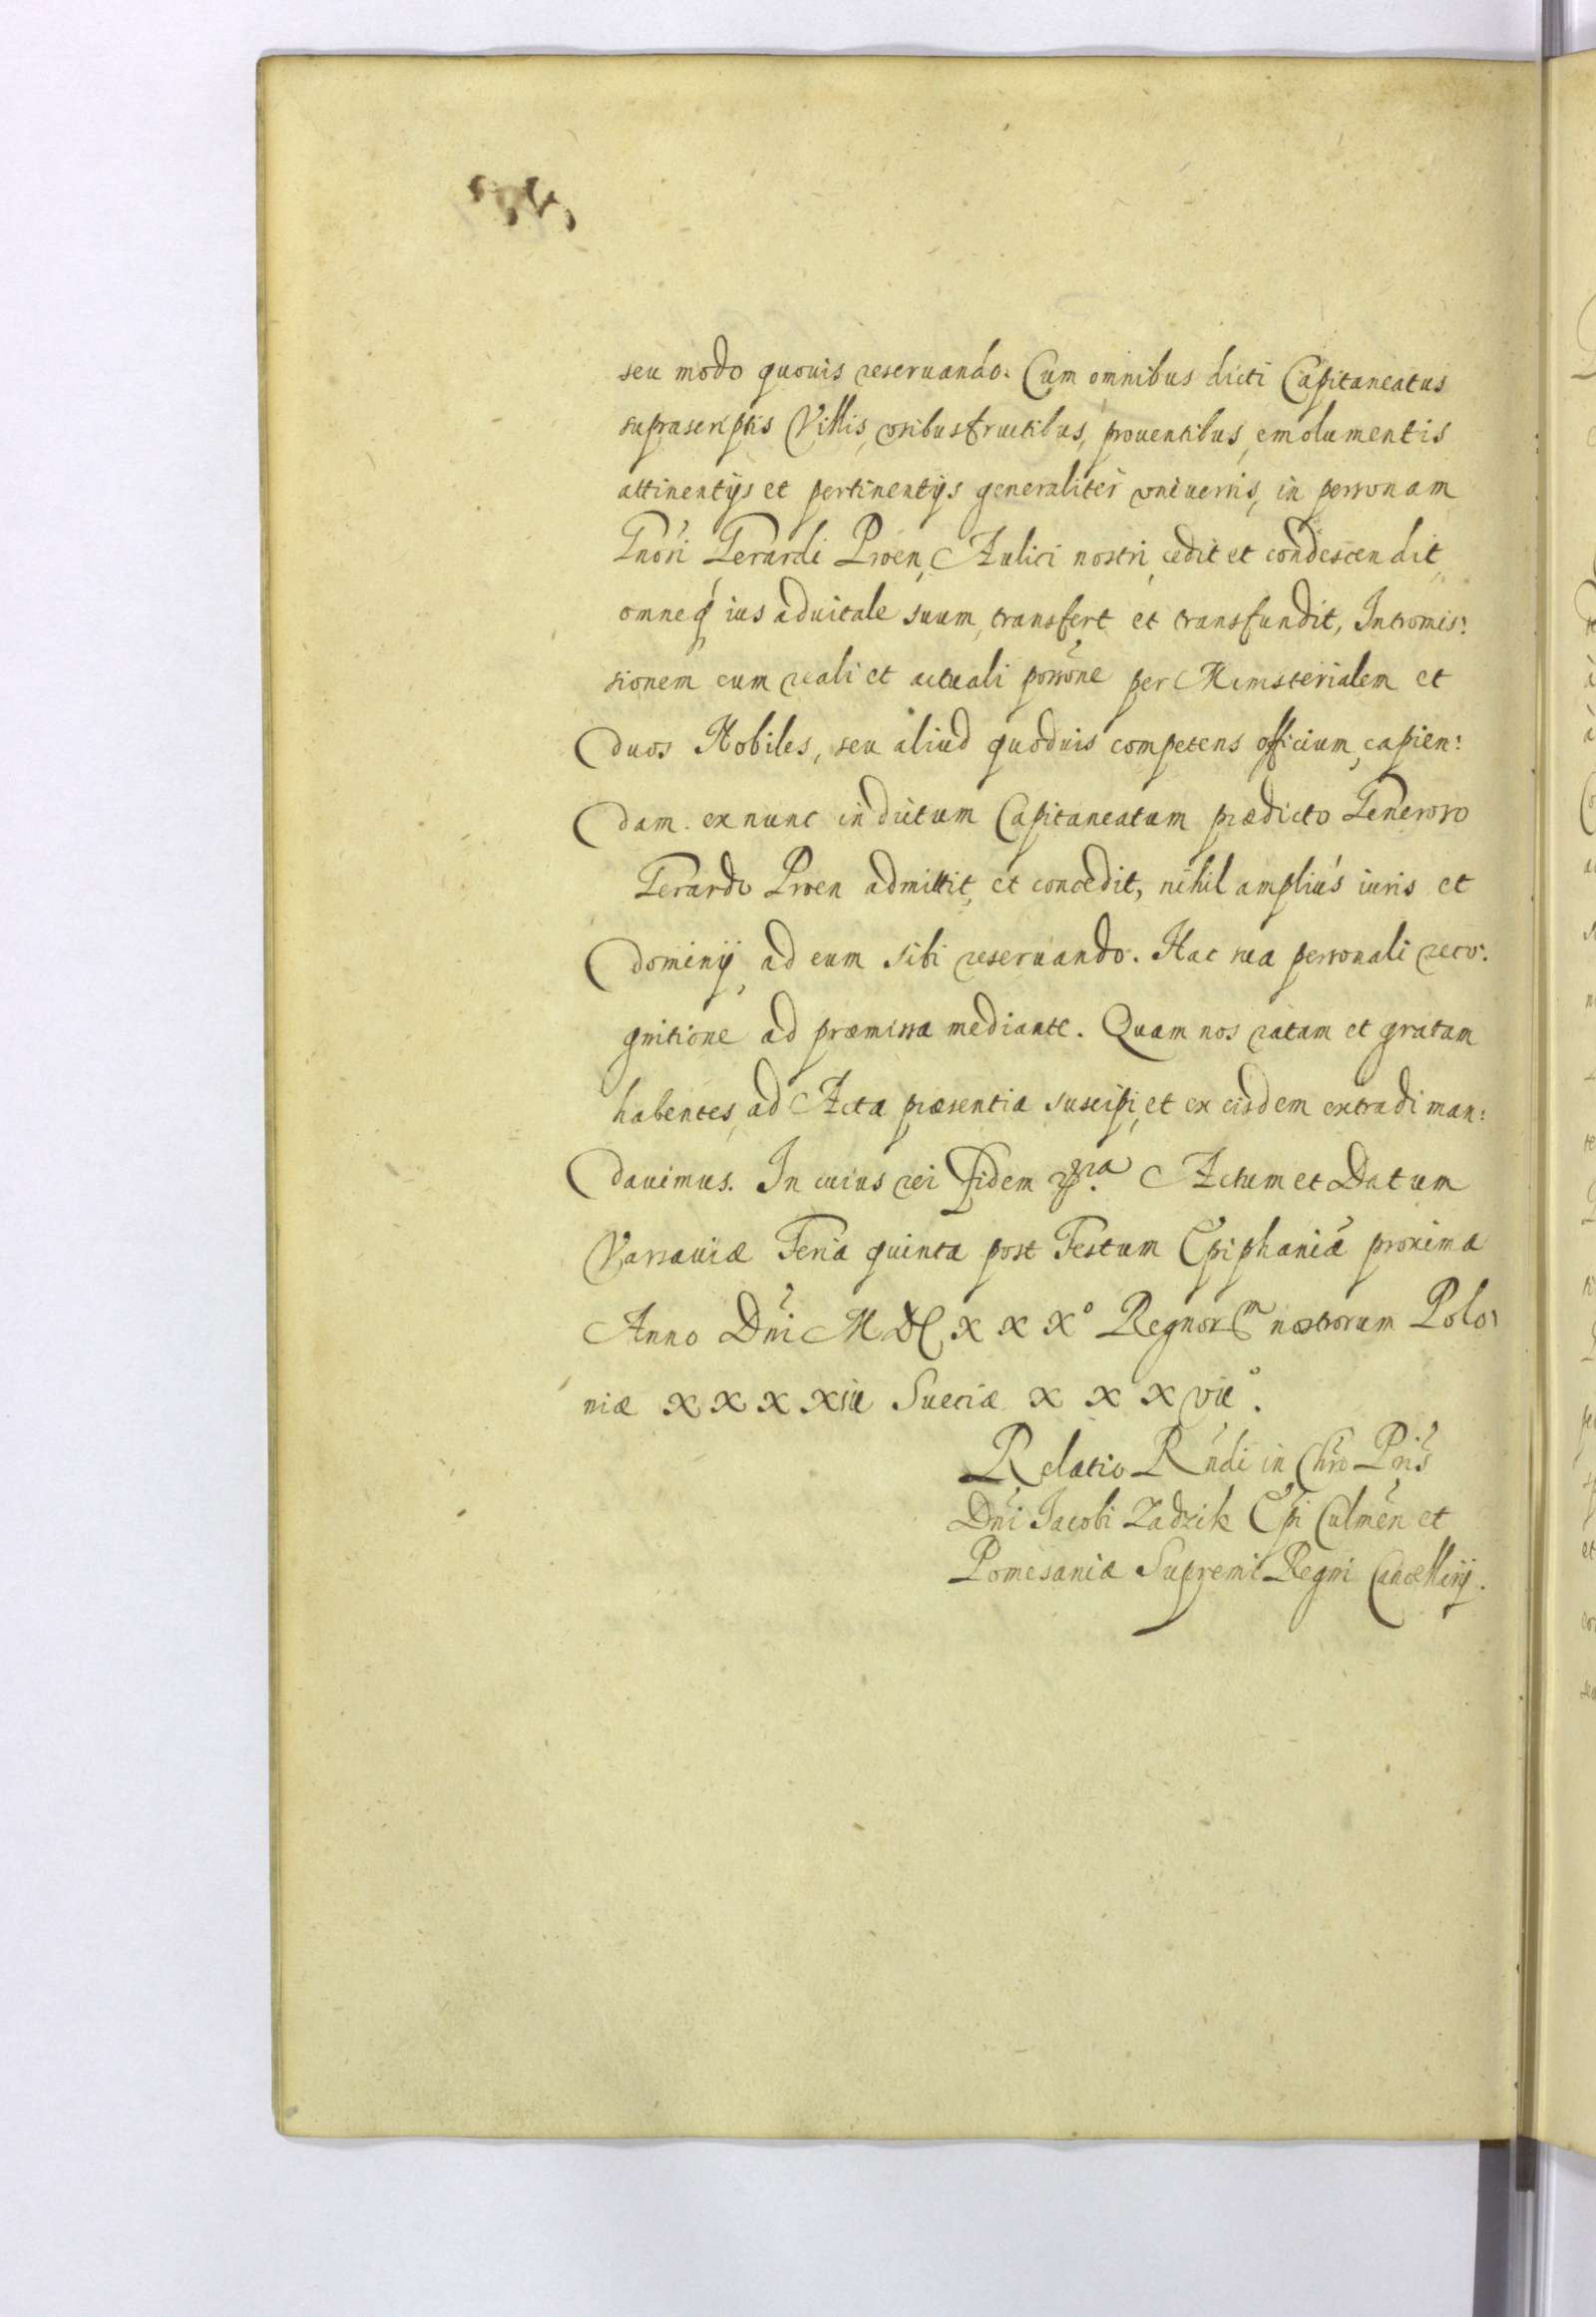 seu modo quouis reseruando. Cum omnibus dicti Capitaneatus
suprascriptis Villis, vsibusfructibus, prouentibus, emolumentis
attinentijs et pertinentijs generaliter vniuersis, in personam
Gnosi Gerardi Proen, Aulici nostri, cedit et condescendit,
omneq́ ius aduitale suum, transfert et transfundit, Intromis:
sionem cum reali et actuali possone per Ministerialem et
duos Nobiles, seu aliud quoduis competens officium, capien:
dam. ex nunc in dictum Capitaneatum prædicto Generoso
Gerardo Proen admittit, et concedit, nihil amplius iuris et
dominij, ad eum sibi reseruando. Hac sua personali reco:
gnitione ad præmissa mediante. Quam nos ratam et gratam
habentes, ad Acta præsentia suscipi, et ex eisdem extradi man:
dauimus. In cuius rei fidem Actum et Datum
Varsauiæ Feria quinta post Festum Epiphaniæ proxima
Anno Dni MDCxxx° Regnorum nostrorum Polo:
niæ xxxxiii Sueciæ xxxvii°.
Relatio Rndi in Chro Pris
Dni Iacobi Zadzik Epi Culmen et
Pomesaniæ Supremi Regni Cancellarij.